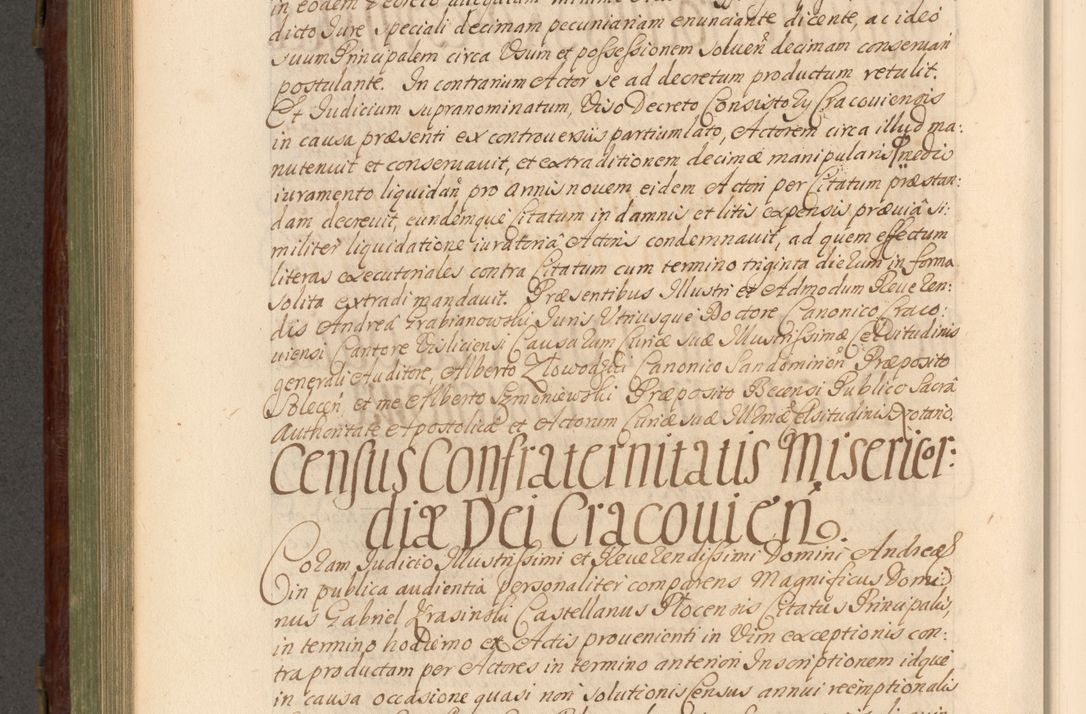 in eodem Decreto allegatam minime
dicto Jure speciali decimam pecuniariam enunciante dicente, ac ideo
suum Principalem circa Usum et possessionem soluen̄ decimam conservari
postulante. In contrarium Actor se ad decretum productum retulit.
Et Judicium supranominatum, Viso Decreto Consistory Cracoviensis
in causa præsenti ex controversiis partium lato, Actorem circa illud ma:
nutenuit et conservauit, et extraditionem decimæ manipularis medio
iuramento liquidan̄ pro annis novem eidem Actori per Citatum præstan:
dam decreuit, eundemque Citatum in damnis et litis expensis præviâ si:
militer liquidatione iuratoriâ Actoris condemnauit, ad quem effectum
literas executoriales contra Citatum cum termino triginta dierum in forma
solita extradi mandauit. Præsentibus Illustri et Admodum Reveren:
dis Andreâ Grabianowski Juris Utriusque Doctore Canonico Craco:
viensi Cantore Visliciensi Causarum Curiæ suæ Illustrissimæ Celsitudinis
generali Auditore, Alberto Zlowodzki Canonico Sandomirien̄ Præposito
Solecen̄, et me Alberto Szmoniewski Præposito Becensi Publico Sacrâ
Authoritate Apostolicâ et Actorum Curiæ suæ Illmæ Clsitudinis Notario.
Census Confraternitatis Misericor:
diæ Dei Cracouien̄.
Coram Judicio Illustrissimi et Reverendissimi Domini Andreæ
in publica audientia personaliter comparens Magnificus Domi:
nus Gabriel Krasinski Castellanus Plocensis Citatus Principalis,
in termino hodierno ex Actis provenienti in Vim exceptionis con:
tra productam per Actores in termino anteriori Inscriptionem idque
in causa occasione quasi non solutionis Census annui reemptionalis